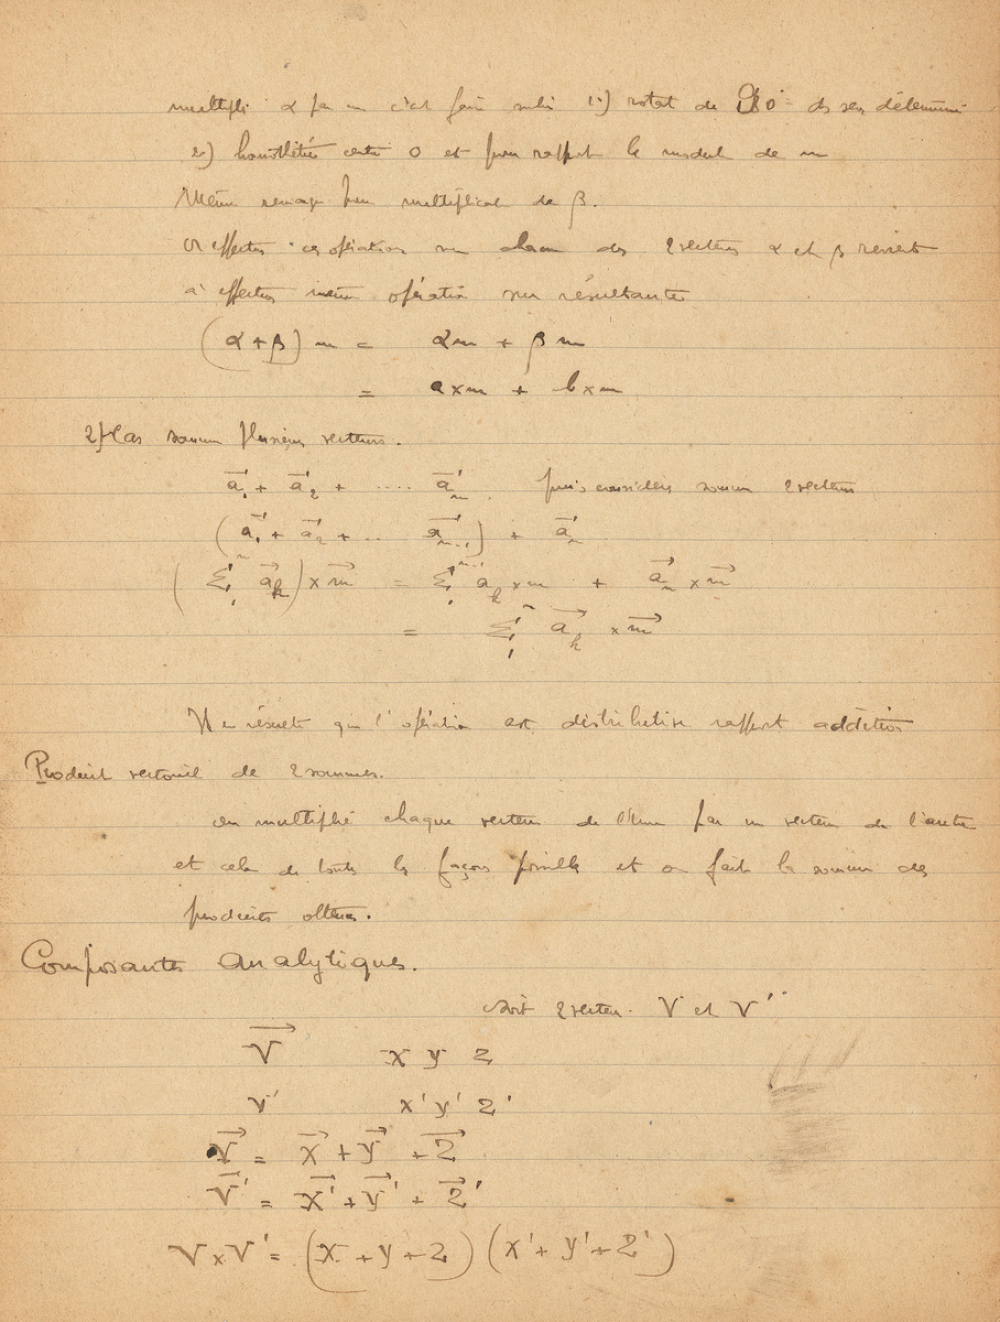 multipli α par m c'est faire subir 1°) rotat de 90° ds sens déterminé
2°) homothétie centre O et pour rapport le module de m
Même remarque pour multiplicat de β.
or effectuer ces opérations sur chacun des 2 vecteurs α et β revient
à effectuer même opération sur résultante
(α + β) m = αm + βm
= a×m + b×m
2°) Cas somme plusieurs vecteurs.
a⃗₁ + a⃗₂ + .... a⃗ₙ . puis considérer somme 2 vecteurs
(a⃗₁ + a⃗₂ + ... a⃗ₙ₋₁) + a⃗ₙ
(Σ₁ⁿ a⃗ₖ) × m⃗ = Σ₁ⁿ⁻¹ aₖ × m + a⃗ₙ × m⃗
= Σ₁ⁿ a⃗ₖ × m⃗
Il en résulte que l'opération est distributive rapport addition
Produit vectoriel de 2 sommes.
on multiplie chaque vecteur de l'une par un vecteur de l'autre
et cela de toutes les façons possibles et on fait la somme des
produits obtenus.
Composantes analytiques.
Soit 2 vecteurs. V et V'
V⃗ X Y Z
V' X' Y' Z'
V⃗ = X⃗ + Y⃗ + Z⃗
V⃗' = X⃗' + Y⃗' + Z⃗'
V × V' = (X + Y + Z) (X' + Y' + Z')